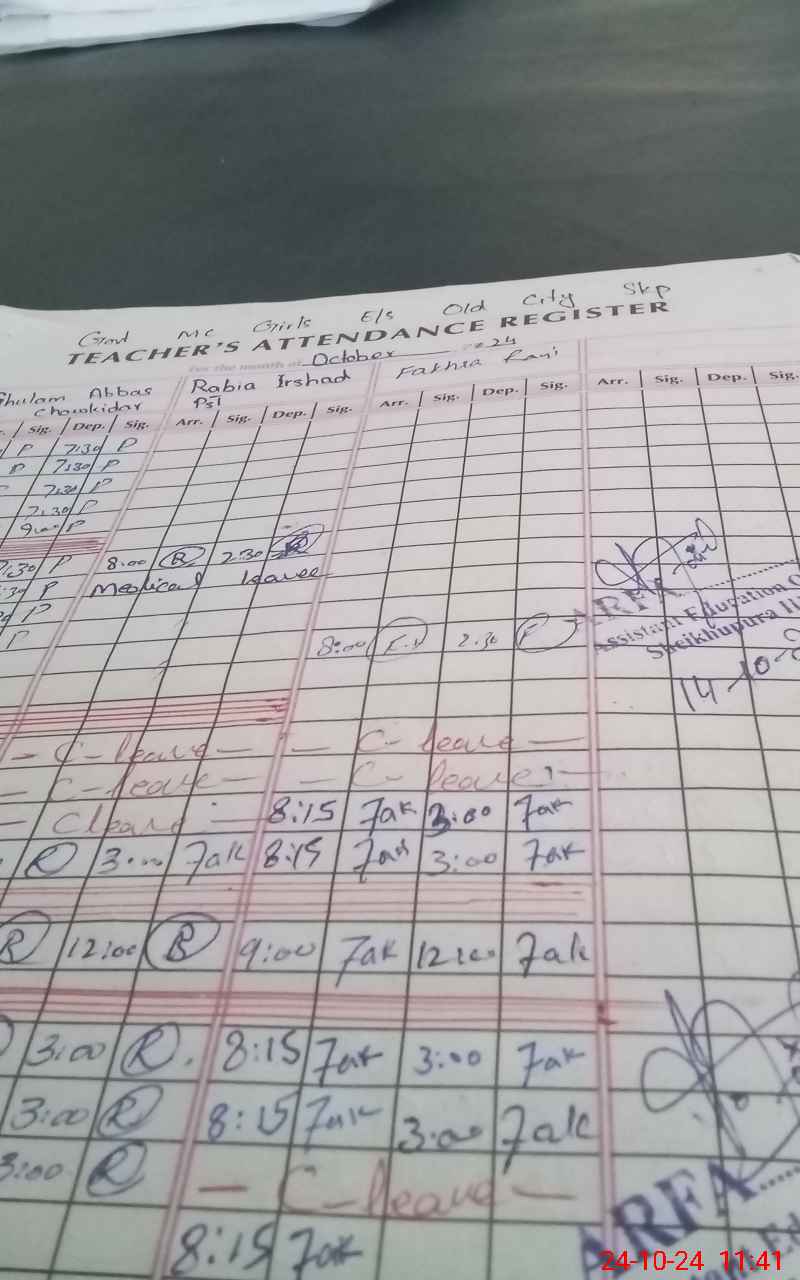 Govt MC Girls E/S Old City Skp
TEACHER'S ATTENDANCE REGISTER
For the month of October 2024
Ghulam Abbas Rabia Irshad Fakhra Rani
Chowkidar PST
Sig. Dep. Sig. Arr. Sig. Dep. Sig. Arr. Sig. Dep. Sig. Arr. Sig. Dep. Sig.
P 7:30 P
P 7:30 P
7:30 P
7:30 P
9:00 P
7:30 P 8:00 R 2:30
:30 P Medical leave
P
P 8:00 2:30 F
ARFA
Assistant Education
Sheikhupura
14-10-2
- C-leave - - C-leave -
- C-leave - - C-leave -
- C leave - 8:15 7ak 3:00 7ak
R 3:00 7ak 8:15 7ak 3:00 7ak
R 12:00 R 9:00 7ak 12:00 7ak
3:00 R 8:15 7ak 3:00 7ak
3:00 R 8:15 7ak 3:00 7ak
3:00 R - C-leave -
8:15 7ak
ARFA
24-10-24 11:41